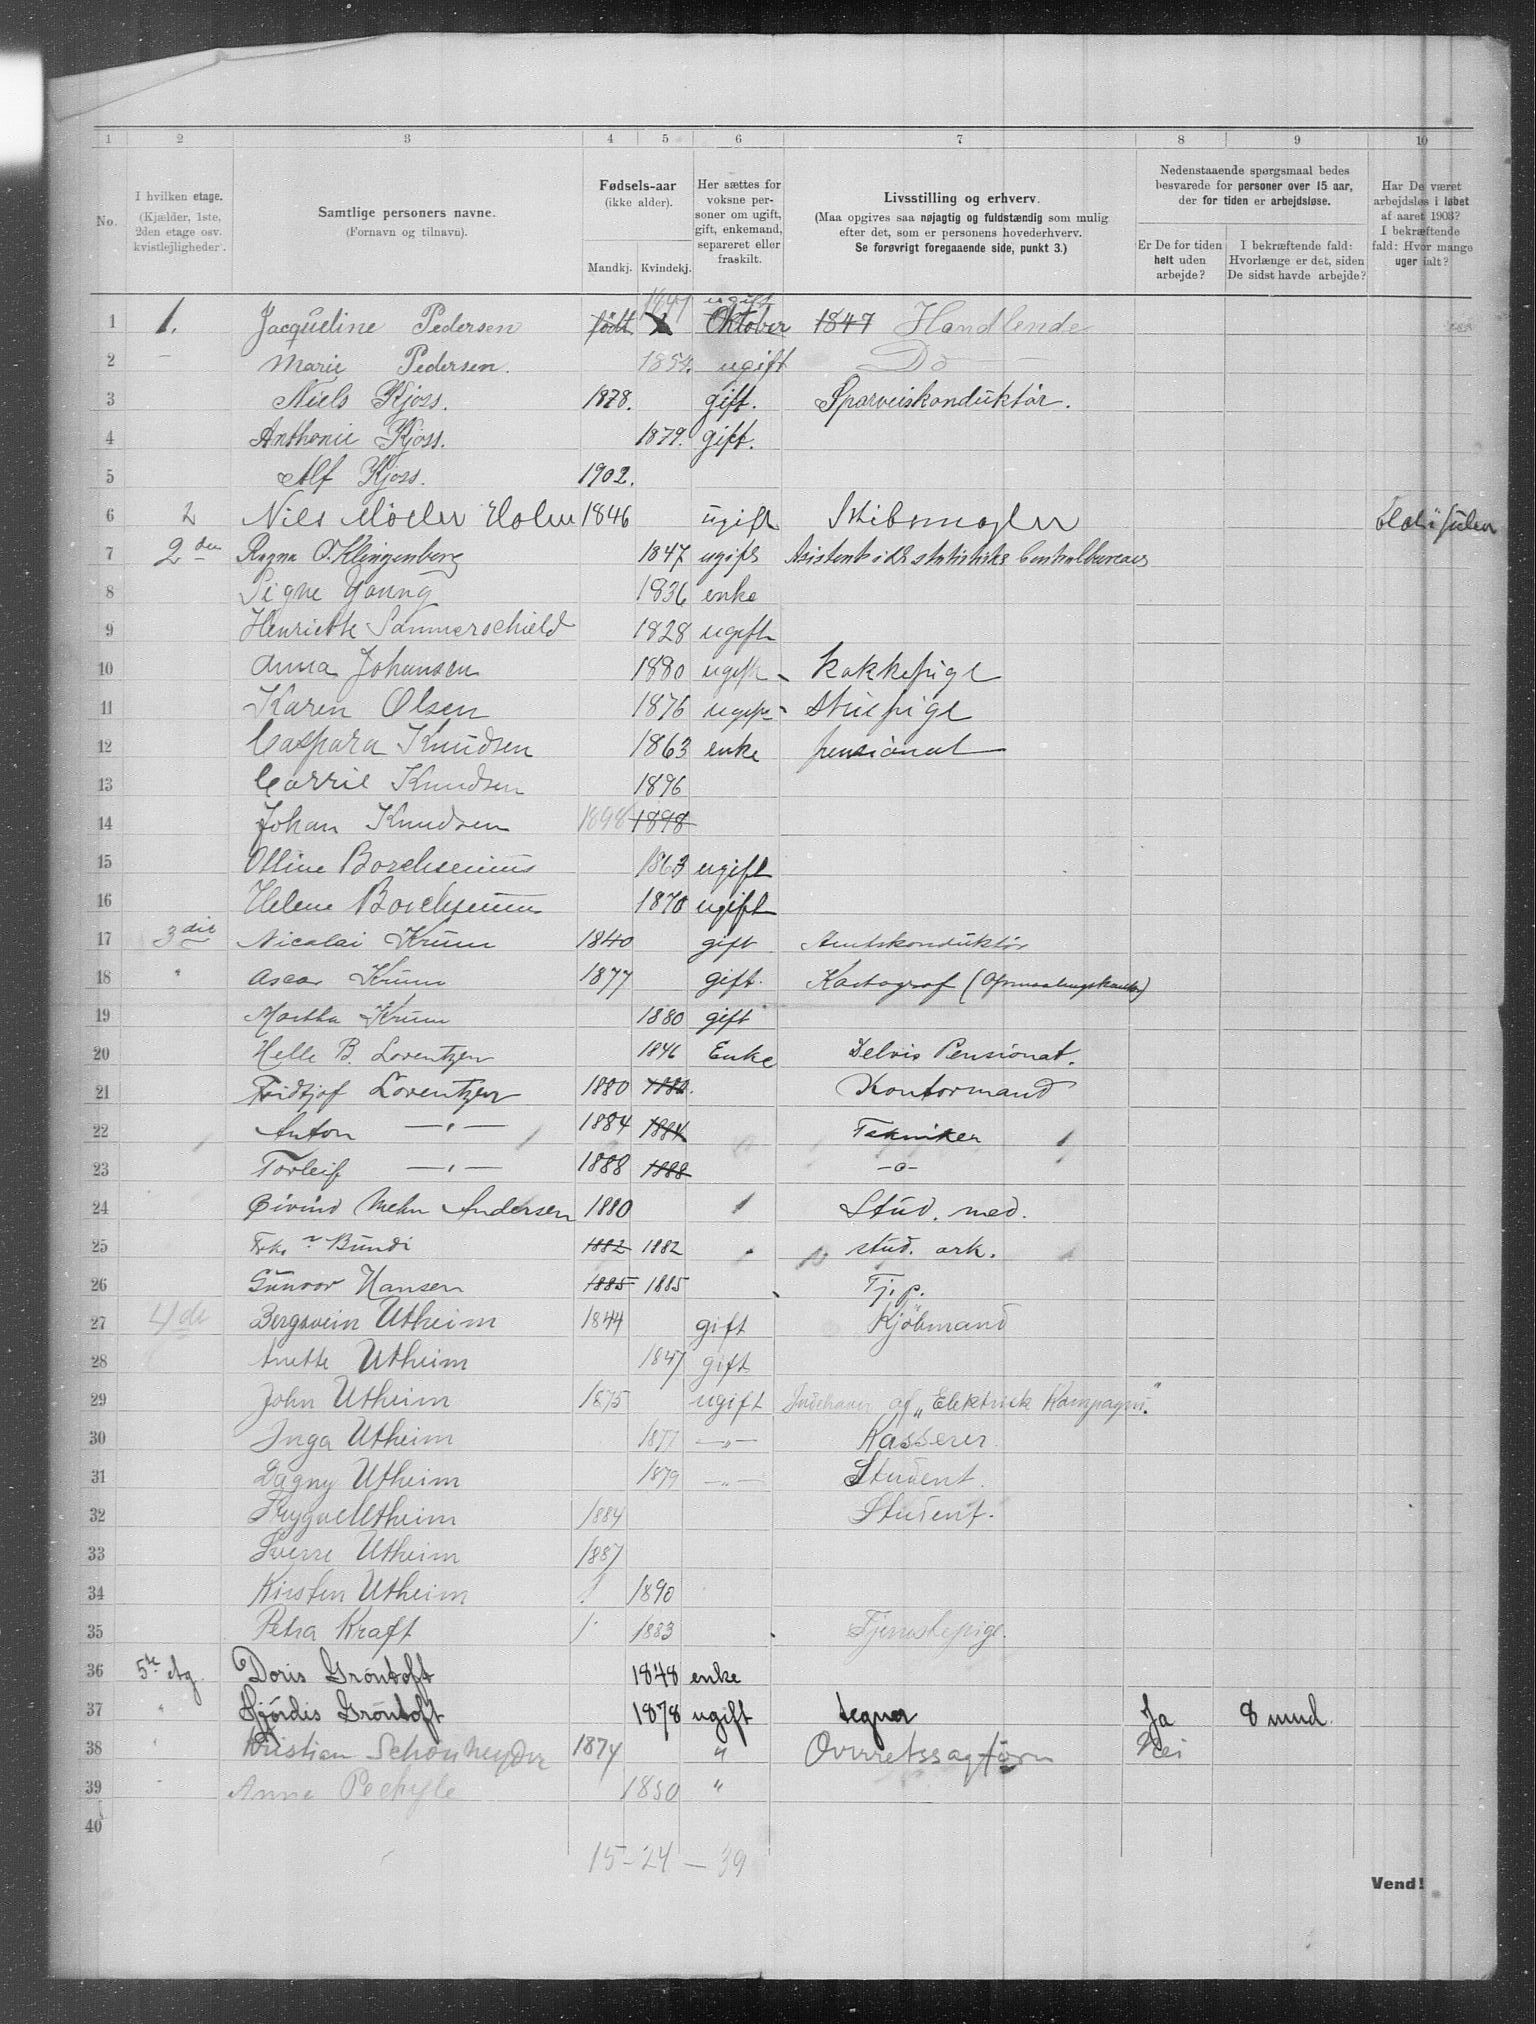 1 2 3 4 5 6 7 8 9 10
No.
I hvilken etage.
(Kjælder, 1ste, 2den etage osv. kvistlejligheder.
Samtlige personers navne.
(Fornavn og tilnavn).
Fødsels-aar
(ikke alder).
Mandkj. Kvindekj.
Her sættes for voksne personer om ugift, gift, enkemand, separeret eller fraskilt.
Livsstilling og erhverv.
(Maa opgives saa nøjagtig og fuldstændig som mulig efter det, som er personens hovederhverv.
Se forøvrigt foregaaende side, punkt 3.)
Nedenstaaende spørgsmaal bedes besvarede for personer over 15 aar, der for tiden er arbejdsløse.
Er De for tiden helt uden arbejde?
I bekræftende fald: Hvorlænge er det, siden De sidst havde arbejde?
Har De været arbejdsløs i løbet af aaret 1903? I bekræftende fald: Hvor mange uger ialt?
1847 ugift
1 1. Jacqueline Pedersen født Oktober 1847 Handlende
2 — Marie Pedersen. 1854. ugift Do
3 Niels Kjoss. 1878. gift. Sporveiskonduktör.
4 Anthonie Kjoss. 1879. gift.
5 Alf Kjoss. 1902.
6 2 Nils Møller Holm 1846 ugift Skibsmægler
7 2den Ragna O. Klingenberg 1847 ugift Assistent i det statistiske Centralbureau
8 Signe Young 1836 enke
9 Henriette Sommerschield 1828 ugift
10 Anna Johansen 1880 ugift Kokkepige
11 Karen Olsen 1876 ugift Stuepige
12 Caspara Knudsen 1863 enke pensionat
13 Carrie Knudsen 1896
14 Johan Knudsen 1898 1898
15 Olline Borchsenius 1863 ugift
16 Helene Borchsenius 1870 ugift
17 3die Nicolai Krum 1840 gift Amtskonduktör
18 " Oscar Krum 1877 gift. Kartograf (Opmaalingskontor)
19 Martha Krum 1880 gift
20 Helle B. Lorentzen 1846 Enke Delvis Pensionat.
21 Fridtjof Lorentzen 1880 1880. Kontormand
22 Anton —"— 1884 1884 Tekniker
23 Torleif —"— 1888 1888 -o-
24 Øivind Mehn Andersen 1880 Stud. med.
25 Frk. Bundi 1882 1882 stud. ark.
26 Gunvor Hansen 1885 1885 Tj. p.
27 4de Bergsvein Utheim 1844 gift Kjöbmand
28 Anette Utheim 1847 gift
29 John Utheim 1875 ugift Indehaver af „Elektrisk Kompagni."
30 Inga Utheim 1877 —"— Kasserer
31 Dagny Utheim 1879 —"— Student.
32 Trygve Utheim 1884 Student.
33 Sverre Utheim 1887
34 Kirsten Utheim 1890
35 Petra Kraft 1883 Tjenestepige.
36 5te etg. Doris Gröntoft 1848 enke
37 " Hjördis Gröntoft 1878 ugift tegner Ja 8 mnd.
38 " Kristian Schönheyder 1874 " Overretssagförer Nei
39 " Anna 1850 "
40
15 - 24 — 39
Vend!